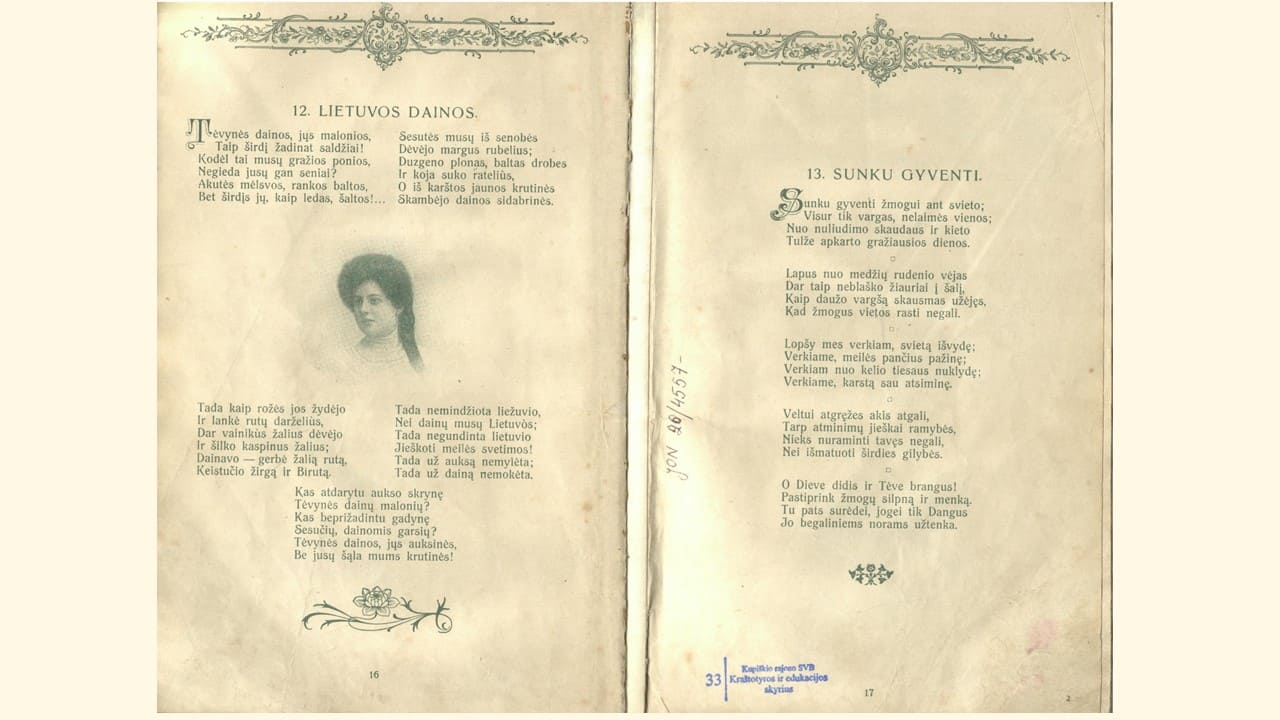 12. LIETUVOS DAINOS.
Tėvynės dainos, jųs malonios,
Taip širdį žadinat saldžiai!
Kodėl tai musų gražios ponios,
Negieda jusų gan seniai?
Akutės mėlsvos, rankos baltos,
Bet širdįs jų, kaip ledas, šaltos!...
Sesutės musų iš senobės
Dėvėjo margus rubelius;
Duzgeno plonas, baltas drobes
Ir koja suko ratelius,
O iš karštos jaunos krutinės
Skambėjo dainos sidabrinės.
Tada kaip rožės jos žydėjo
Ir lankė rutų darželius,
Dar vainikus žalius dėvėjo
Ir šilko kaspinus žalius;
Dainavo — gerbė žalią rutą,
Keistučio žirgą ir Birutą.
Tada nemindžiota liežuvio,
Nei dainų musų Lietuvos;
Tada negundinta lietuvio
Jieškoti meilės svetimos!
Tada už auksą nemylėta;
Tada už dainą nemokėta.
Kas atdarytu aukso skrynę
Tėvynės dainų malonių?
Kas beprižadintu gadynę
Sesučių, dainomis garsių?
Tėvynės dainos, jųs auksinės,
Be jusų šąla mums krutinės!
16
13. SUNKU GYVENTI.
Sunku gyventi žmogui ant svieto;
Visur tik vargas, nelaimės vienos;
Nuo nuliudimo skaudaus ir kieto
Tulže apkarto gražiausios dienos.
Lapus nuo medžių rudenio vėjas
Dar taip neblaško žiauriai į šalį,
Kaip daužo vargšą skausmas užėjęs,
Kad žmogus vietos rasti negali.
Lopšy mes verkiam, svietą išvydę;
Verkiame, meilės pančius pažinę;
Verkiam nuo kelio tiesaus nuklydę;
Verkiame, karstą sau atsiminę.
Veltui atgręžes akis atgali,
Tarp atminimų jieškai ramybės,
Nieks nuraminti tavęs negali,
Nei išmatuoti širdies gilybės.
O Dieve didis ir Tėve brangus!
Pastiprink žmogų silpną ir menką.
Tu pats surėdei, jogei tik Dangus
Jo begaliniems norams užtenka.
JON 20/4557-
33
Kupiškio rajono SVB
Kraštotyros ir edukacijos
skyrius
17
2